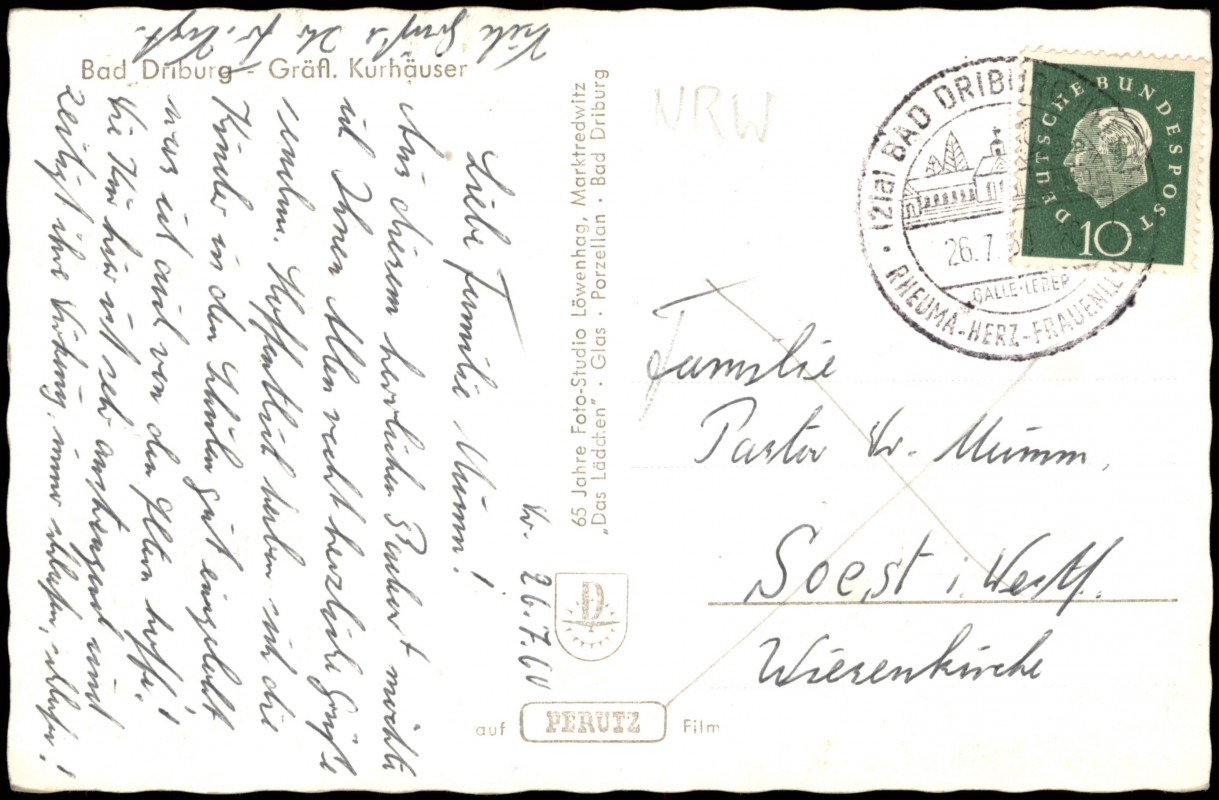 Bad Driburg - Gräfl. Kurhäuser
Dr. 26.7.60
Liebe Familie Mumm!
Aus diesem herrlichen Badeort möchte
ich Ihnen Allen recht herzliche Grüße
senden. Hoffentlich haben sich die
Kinder in den Schulen gut eingelebt
was ich auch von den Eltern hoffe!
Die Kur hier ist sehr anstrengend und
zeitigt ihre Wirkung, immer schlafen, schlafen!
Viele Grüße Ihr
65 Jahre Foto-Studio Löwenhag, Marktredwitz
„Das Lädchen" · Glas · Porzellan · Bad Driburg
D
auf PERUTZ Film
NRW
(21a) BAD DRIBURG
26.7.60
GALLE-LEBER
RHEUMA-HERZ-FRAUENL
DEUTSCHE BUNDESPOST
10
Familie
Pastor Dr. Mumm,
Soest i. Westf.
Wiesenkirche